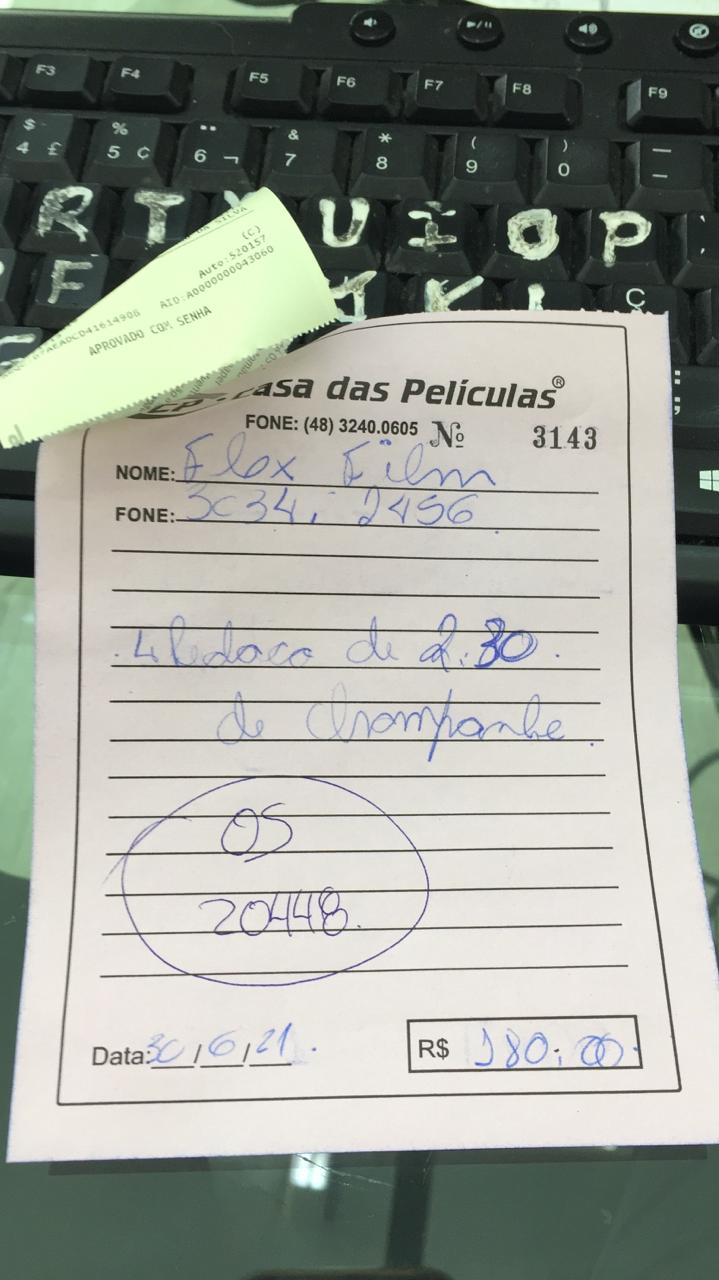 F3 F4 F5 F6 F7 F8 F9
$ 4 £ % 5 ¢ ¨ 6 ¬ & 7 * 8 ( 9 ) 0
R T U I O P
F K L Ç
DA SILVA
(C)
Auto:520157
AID:A0000000043060
APROVADO COM SENHA
Casa das Películas®
FONE: (48) 3240.0605 Nº 3143
NOME: Flex Film
FONE: 3034. 2456
4 Pedaco de 2.30.
de Champanhe.
OS
20448.
Data: 30/6/21.
R$ 180,00